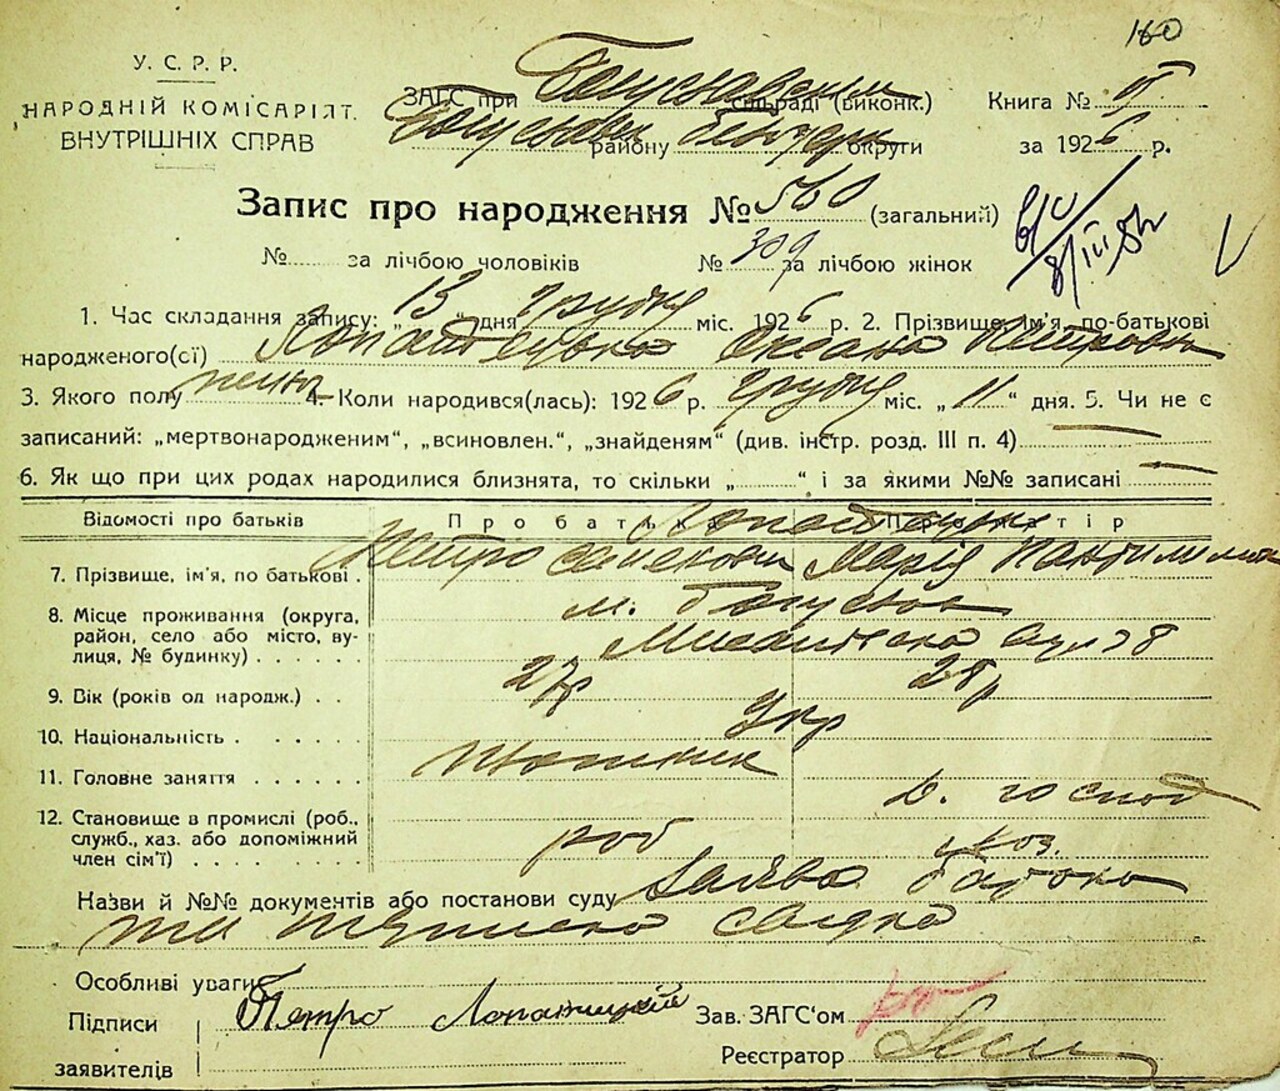 160
У. С. Р. Р.
НАРОДНІЙ КОМІСАРІЯТ
ВНУТРІШНІХ СПРАВ
ЗАГС при Богуславським сільраді (виконк.)
Книга №
Богуславськ району Білоцерк округи
за 1926 р.
Запис про народження № 560 (загальний)
№ за лічбою чоловіків № 309 за лічбою жінок
8/III 52
1. Час складання запису: „13" дня грудня міс. 1926 р. 2. Прізвище, ім'я, по-батькові
народженого(сї) Лопатецька Оксана Петровна
3. Якого полу жіноч 4. Коли народився(лась): 1926 р. грудня міс. „11" дня. 5. Чи не є
записаний: „мертвонародженим", „всиновлен.", „знайденям" (див. інстр. розд. III п. 4)
6. Як що при цих родах народилися близнята, то скільки „ " і за якими №№ записані
Відомості про батьків Про батька Про матір
7. Прізвище, ім'я, по батькові. Петро Семенович Марія
8. Місце проживання (округа, м. Богуслав
район, село або місто, ву-
лиця, № будинку) вул 38
9. Вік (років од народж.) 27р 28р
10. Національність Укр
11. Головне заняття д. господ
12. Становище в промислі (роб.,
служб., хаз. або допоміжний роб
член сім'ї)
Назви й №№ документів або постанови суду Заява батька
та свідка
Особливі уваги
Підписи Петро Лопатицкій Зав. ЗАГС'ом
заявителів Реєстратор